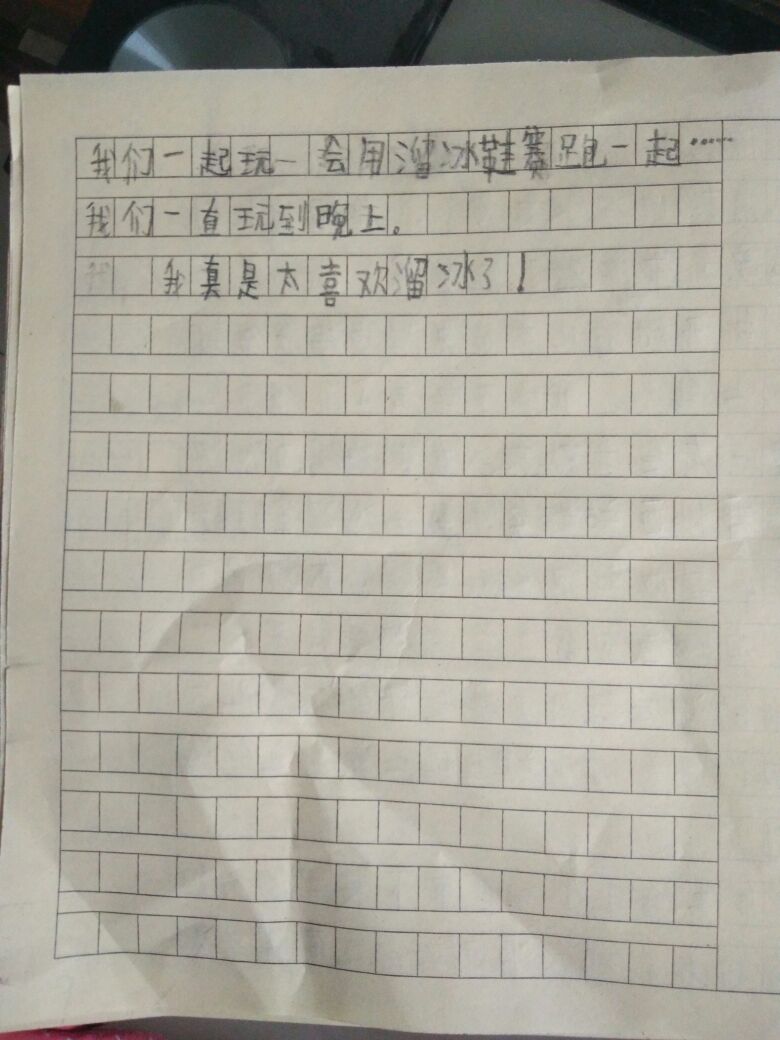 我们一起玩一会用溜冰鞋赛跑一起……
我们一直玩到晚上。
我真是太喜欢溜冰了！